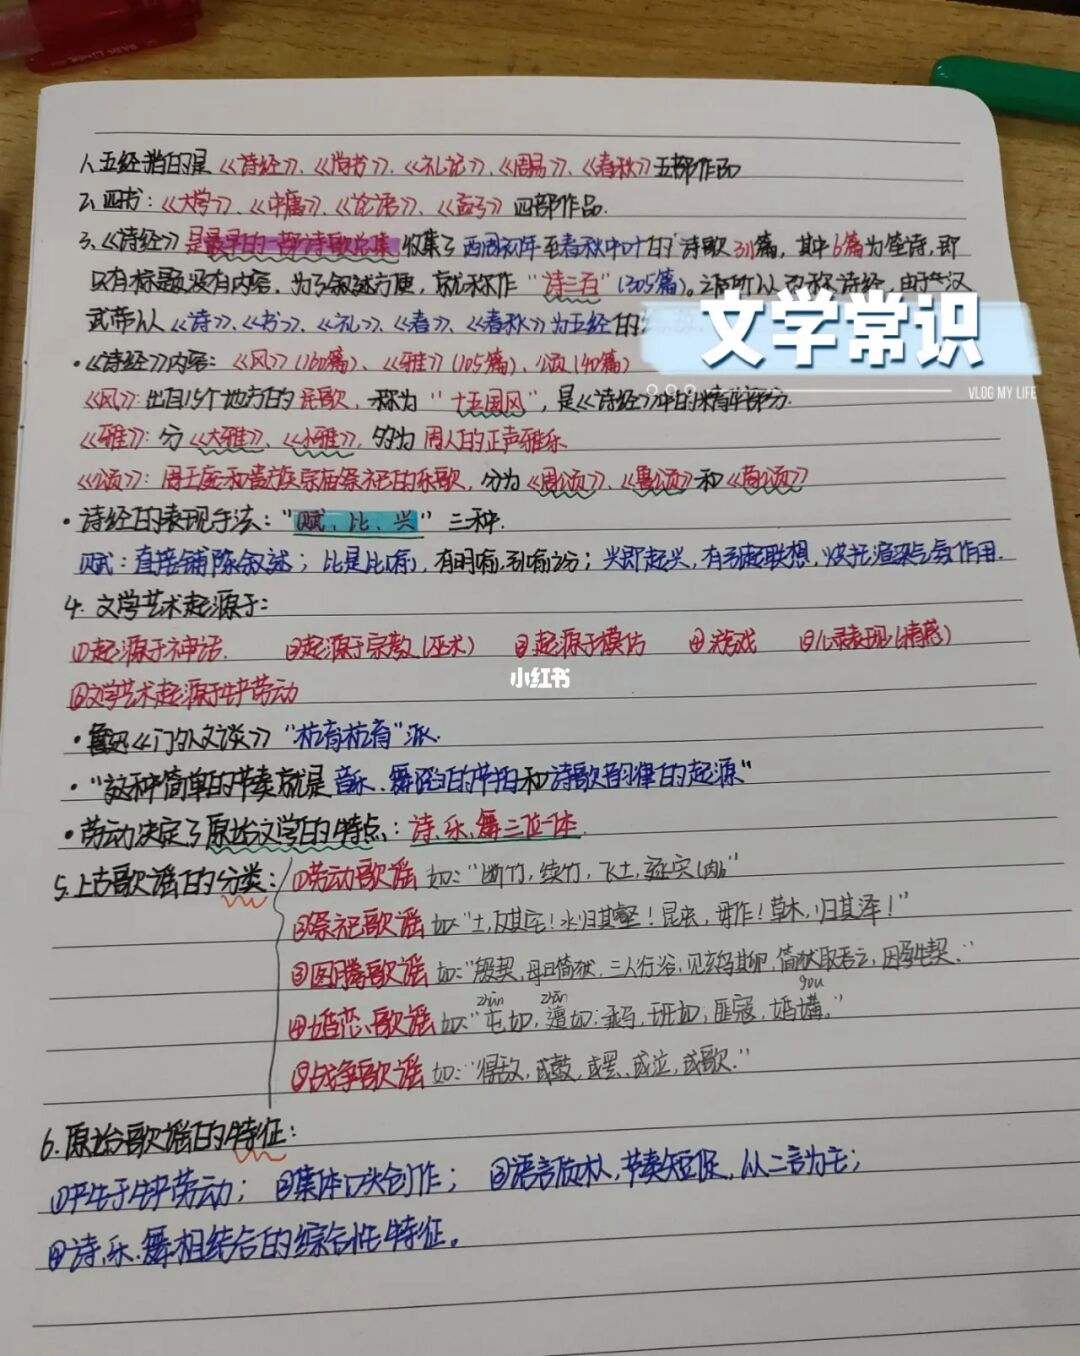 1、五经指的是《诗经》、《尚书》、《礼记》、《周易》、《春秋》五部作品
2、四书：《大学》、《中庸》、《论语》、《孟子》四部作品.
3、《诗经》是最早的一部诗歌总集 收集了西周初年至春秋中叶的诗歌311篇，其中6篇为笙诗，即
只有标题没有内容，为了叙述方便，就称作“诗三百”（305篇）。之所以又称诗经，由于汉
武帝以《诗》、《书》、《礼》、《春》、《春秋》为五经的
文学常识
VLOG MY LIFE
·《诗经》内容：《风》（160篇）、《雅》（105篇）、颂（40篇）
《风》：出自15个地方的民歌，称为“十五国风”，是《诗经》中的精华部分.
《雅》：分《大雅》、《小雅》，多为周人的正声雅乐
《颂》：周王庭和贵族宗庙祭祀的乐歌，分为《周颂》、《鲁颂》和《商颂》
·诗经的表现手法：“赋、比、兴”三种.
赋：直接铺陈叙述；比是比喻，有明喻，引喻之分；兴即起兴，有引起联想，烘托渲染气氛作用.
4. 文学艺术起源于：
①起源于神话. ②起源于宗教（巫术） ③起源于模仿 ④游戏 ⑤心灵表现（情感）
⑥文学艺术起源于生产劳动
小红书
·鲁迅《门外文谈》“杭育杭育”派.
·“这种简单的节奏就是音乐、舞蹈的节拍和诗歌韵律的起源”
·劳动决定了原始文学的特点：诗、乐、舞三位一体.
5. 上古歌谣的分类：①劳动歌谣 如：“断竹，续竹，飞土，逐宍（肉）”
②祭祀歌谣 如：“土，反其宅！水归其壑！昆虫，毋作！草木，归其泽！”
③图腾歌谣 如：“殷契，母曰简狄，三人行浴，见玄鸟其卵，简狄取吞之，因孕生契.”
zhūn zhān gòu
④婚恋歌谣 如：“屯如，邅如；乘马，班如，匪寇，婚媾。”
⑤战争歌谣 如：“得敌，或鼓，或罢、或泣，或歌.”
6. 原始歌谣的特征：
①产生于生产劳动； ②集体口头创作； ③语言质朴，节奏短促，以二言为主；
④诗、乐、舞相结合的综合性特征。